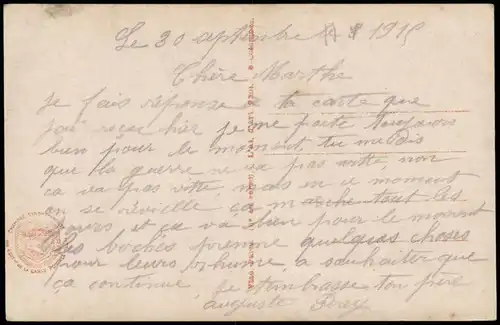 Le 30 septembre 1915
Chère Marthe
je fais réponse a ta carte que
jai reçue hier je me porte toujours
bien pour le moment, tu me dis
que la guerre ne va pas vitte, non
ça va pas vitte, mais en ce moment
on se réveille ça marche tout les
jours et ça va bien pour le moment
les boches prenne quelques choses
pour leurs rhume, a souhaiter que
ça continue, je tembrasse ton père
auguste